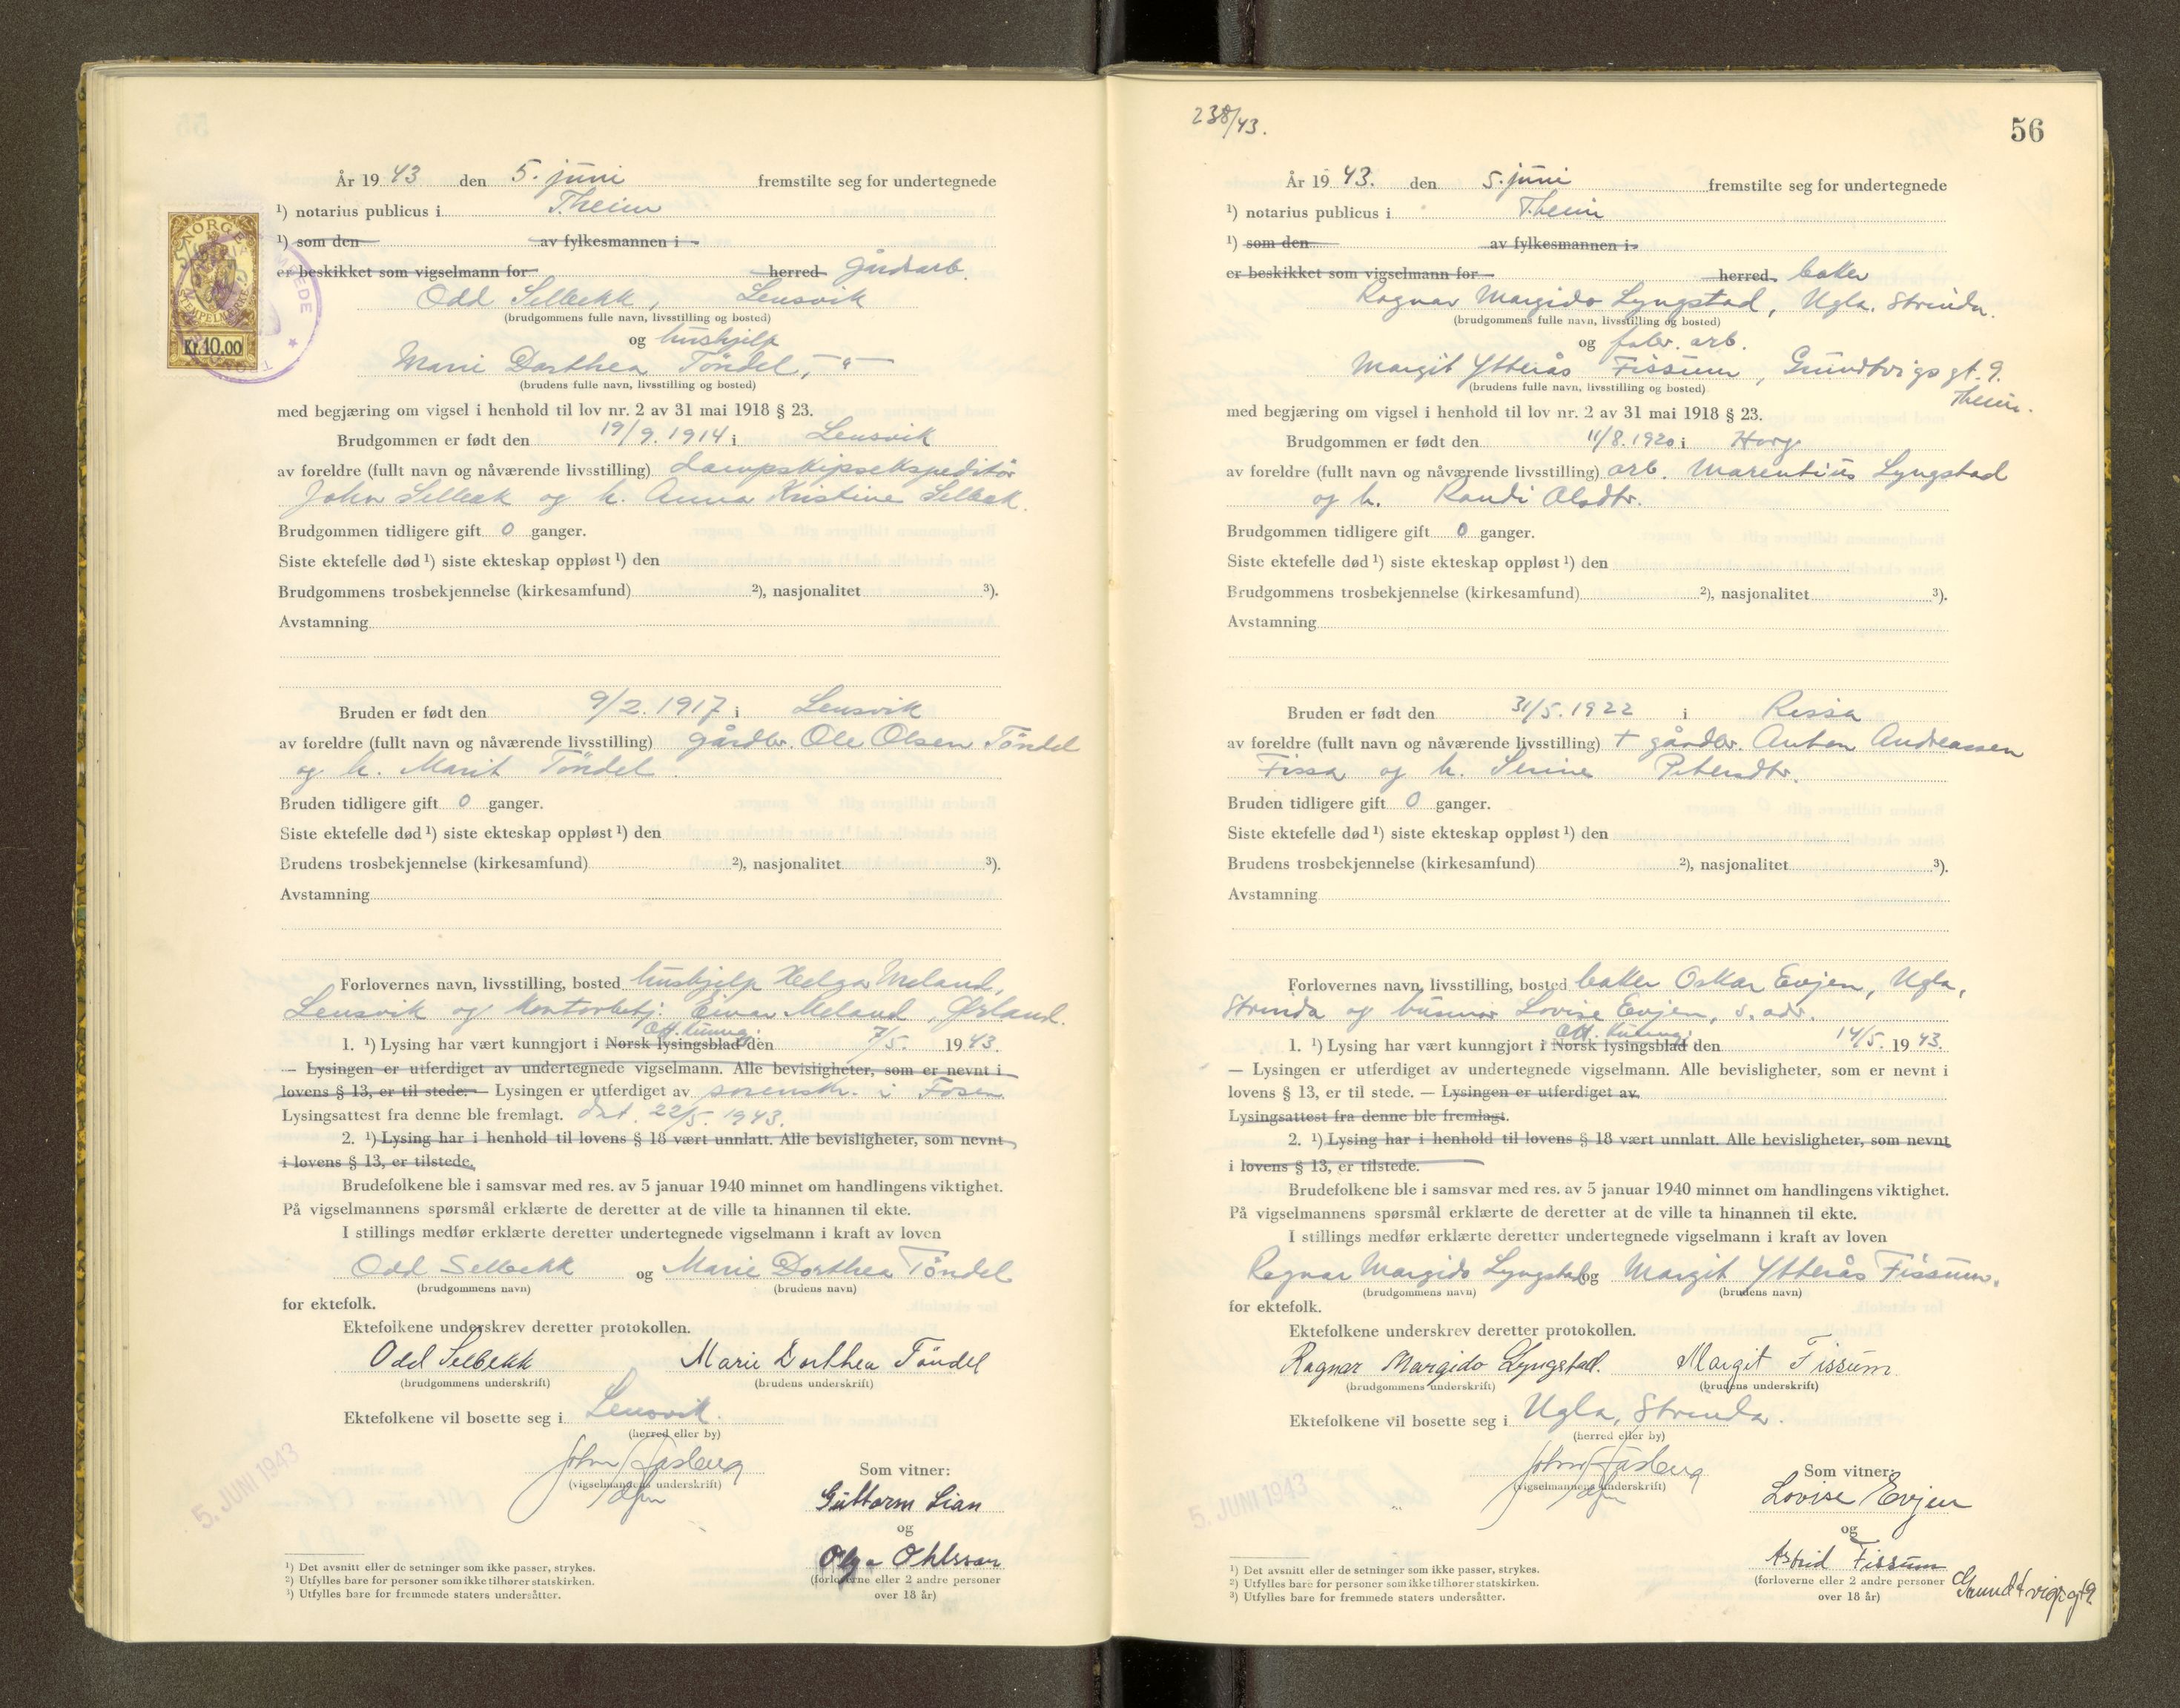 År 19 43 den 5. juni fremstilte seg for undertegnede
¹) notarius publicus i Theim
¹) som den av fylkesmannen i
er beskikket som vigselmann for herred gårdarb.
Odd Selbekk, Lensvik
(brudgommens fulle navn, livsstilling og bosted)
og hushjelp
Marie Dorthea Töndel, — " —
(brudens fulle navn, livsstilling og bosted)
med begjæring om vigsel i henhold til lov nr. 2 av 31 mai 1918 § 23.
Brudgommen er født den 19/9. 1914 i Lensvik
av foreldre (fullt navn og nåværende livsstilling) Dampskipsekspeditör
John Selbæk og h. Anna Kristine Selbæk.
Brudgommen tidligere gift 0 ganger.
Siste ektefelle død ¹) siste ekteskap oppløst ¹) den
Brudgommens trosbekjennelse (kirkesamfund) ²), nasjonalitet ³).
Avstamning
Bruden er født den 9/2. 1917 i Lensvik
av foreldre (fullt navn og nåværende livsstilling) gårdbr. Ole Olsen Töndel
og h. Marit Töndel.
Bruden tidligere gift 0 ganger.
Siste ektefelle død ¹) siste ekteskap oppløst ¹) den
Brudens trosbekjennelse (kirkesamfund) ²), nasjonalitet ³).
Avstamning
Forlovernes navn, livsstilling, bosted hushjelp Helga Meland,
Lensvik og kontorbetj. Einar Meland, Ørland.
Off. kunng.
1. ¹) Lysing har vært kunngjort i Norsk lysingsblad den 7/5. 19 43.
— Lysingen er utferdiget av undertegnede vigselmann. Alle bevisligheter, som er nevnt i
lovens § 13, er til stede. — Lysingen er utferdiget av sorenskr. i Fosen
Lysingsattest fra denne ble fremlagt. dat. 22/5. 1943.
2. ¹) Lysing har i henhold til lovens § 18 vært unnlatt. Alle bevisligheter, som nevnt
i lovens § 13, er tilstede.
Brudefolkene ble i samsvar med res. av 5 januar 1940 minnet om handlingens viktighet.
På vigselmannens spørsmål erklærte de deretter at de ville ta hinannen til ekte.
I stillings medfør erklærte deretter undertegnede vigselmann i kraft av loven
Odd Selbekk og Marie Dorthea Töndel
(brudgommens navn) (brudens navn)
for ektefolk.
Ektefolkene underskrev deretter protokollen.
Odd Selbekk Marie Dorthea Töndel
(brudgommens underskrift) (brudens underskrift)
Ektefolkene vil bosette seg i Lensvik.
(herred eller by)
John Aasberg
(vigselmannens underskrift)
Som vitner:
Guttorm Lian
og
Olga Ohlsson
(forloverne eller 2 andre personer
over 18 år)
5. JUNI 1943
¹) Det avsnitt eller de setninger som ikke passer, strykes.
²) Utfylles bare for personer som ikke tilhører statskirken.
³) Utfylles bare for fremmede staters undersåtter.
NORGE
STEMPELMERKE
Kr. 10.00
238/43.
56
År 19 43. den 5. juni fremstilte seg for undertegnede
¹) notarius publicus i Theim
¹) som den av fylkesmannen i
er beskikket som vigselmann for herred baker
Ragnar Margido Lyngstad, Ugla, Strinda.
(brudgommens fulle navn, livsstilling og bosted)
og fabr. arb.
Margit Ytterås Fissum, Grundtvigs gt. 9.
(brudens fulle navn, livsstilling og bosted)
Theim.
med begjæring om vigsel i henhold til lov nr. 2 av 31 mai 1918 § 23.
Brudgommen er født den 11/8. 1920 i Horg
av foreldre (fullt navn og nåværende livsstilling) arb. Marentius Lyngstad
og h. Randi Olsdtr.
Brudgommen tidligere gift 0 ganger.
Siste ektefelle død ¹) siste ekteskap oppløst ¹) den
Brudgommens trosbekjennelse (kirkesamfund) ²), nasjonalitet ³).
Avstamning
Bruden er født den 31/5. 1922 i Rissa
av foreldre (fullt navn og nåværende livsstilling) + gårdbr. Anton Andreassen
Fissa og h. Serine Petersdtr.
Bruden tidligere gift 0 ganger.
Siste ektefelle død ¹) siste ekteskap oppløst ¹) den
Brudens trosbekjennelse (kirkesamfund) ²), nasjonalitet ³).
Avstamning
Forlovernes navn, livsstilling, bosted baker Oskar Evjen, Ugla,
Strinda og husmor Lovise Evjen, s. adr.
Off. kunng.
1. ¹) Lysing har vært kunngjort i Norsk lysingsblad den 14/5. 19 43.
— Lysingen er utferdiget av undertegnede vigselmann. Alle bevisligheter, som er nevnt i
lovens § 13, er til stede. — Lysingen er utferdiget av
Lysingsattest fra denne ble fremlagt.
2. ¹) Lysing har i henhold til lovens § 18 vært unnlatt. Alle bevisligheter, som nevnt
i lovens § 13, er tilstede.
Brudefolkene ble i samsvar med res. av 5 januar 1940 minnet om handlingens viktighet.
På vigselmannens spørsmål erklærte de deretter at de ville ta hinannen til ekte.
I stillings medfør erklærte deretter undertegnede vigselmann i kraft av loven
Ragnar Margido Lyngstad og Margit Ytterås Fissum.
(brudgommens navn) (brudens navn)
for ektefolk.
Ektefolkene underskrev deretter protokollen.
Ragnar Margido Lyngstad. Margit Fissum
(brudgommens underskrift) (brudens underskrift)
Ektefolkene vil bosette seg i Ugla, Strinda.
(herred eller by)
John Aasberg
(vigselmannens underskrift)
Som vitner:
Lovise Evjen
og
Astrid Fissum
(forloverne eller 2 andre personer
over 18 år)
Grundtvigsgt 9
5. JUNI 1943
¹) Det avsnitt eller de setninger som ikke passer, strykes.
²) Utfylles bare for personer som ikke tilhører statskirken.
³) Utfylles bare for fremmede staters undersåtter.